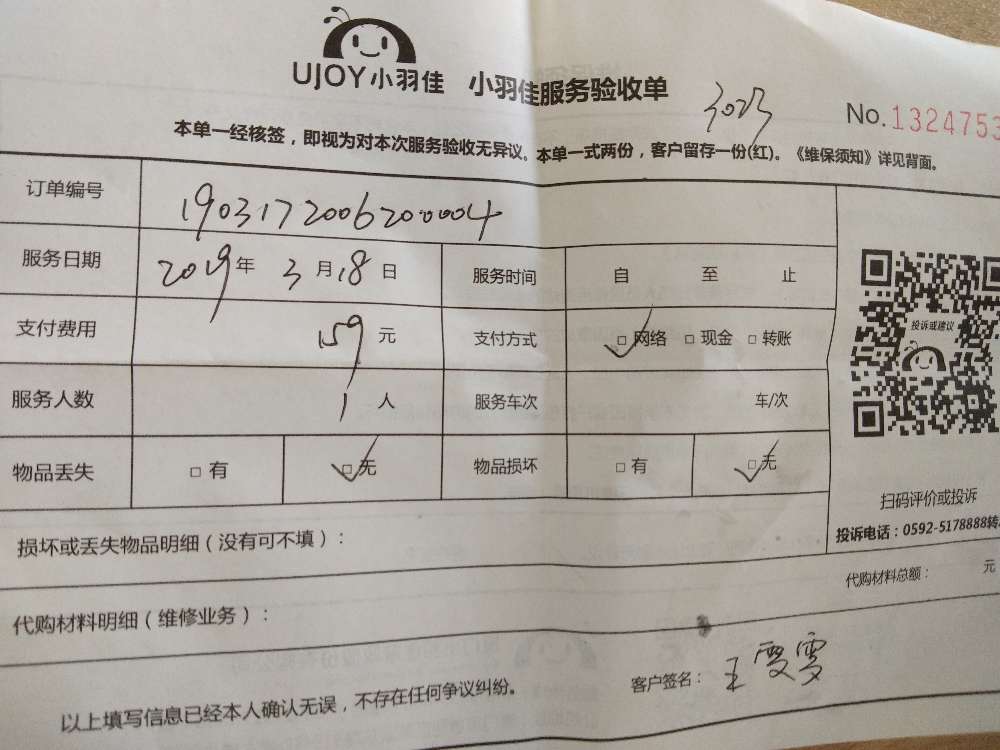 UJOY小羽佳 小羽佳服务验收单
No.1324753
本单一经核签，即视为对本次服务验收无异议。本单一式两份，客户留存一份(红)。《维保须知》详见背面。
订单编号 1903172006200004
服务日期 2019年 3月18日 服务时间 自 至 止
支付费用 159元 支付方式 □网络 □现金 □转账
服务人数 1人 服务车次 车/次
物品丢失 □有 □无 物品损坏 □有 □无
投诉或建议
扫码评价或投诉
投诉电话：0592-5178888转
损坏或丢失物品明细（没有可不填）：
代购材料总额： 元
代购材料明细（维修业务）：
以上填写信息已经本人确认无误，不存在任何争议纠纷。
客户签名：王雯雯